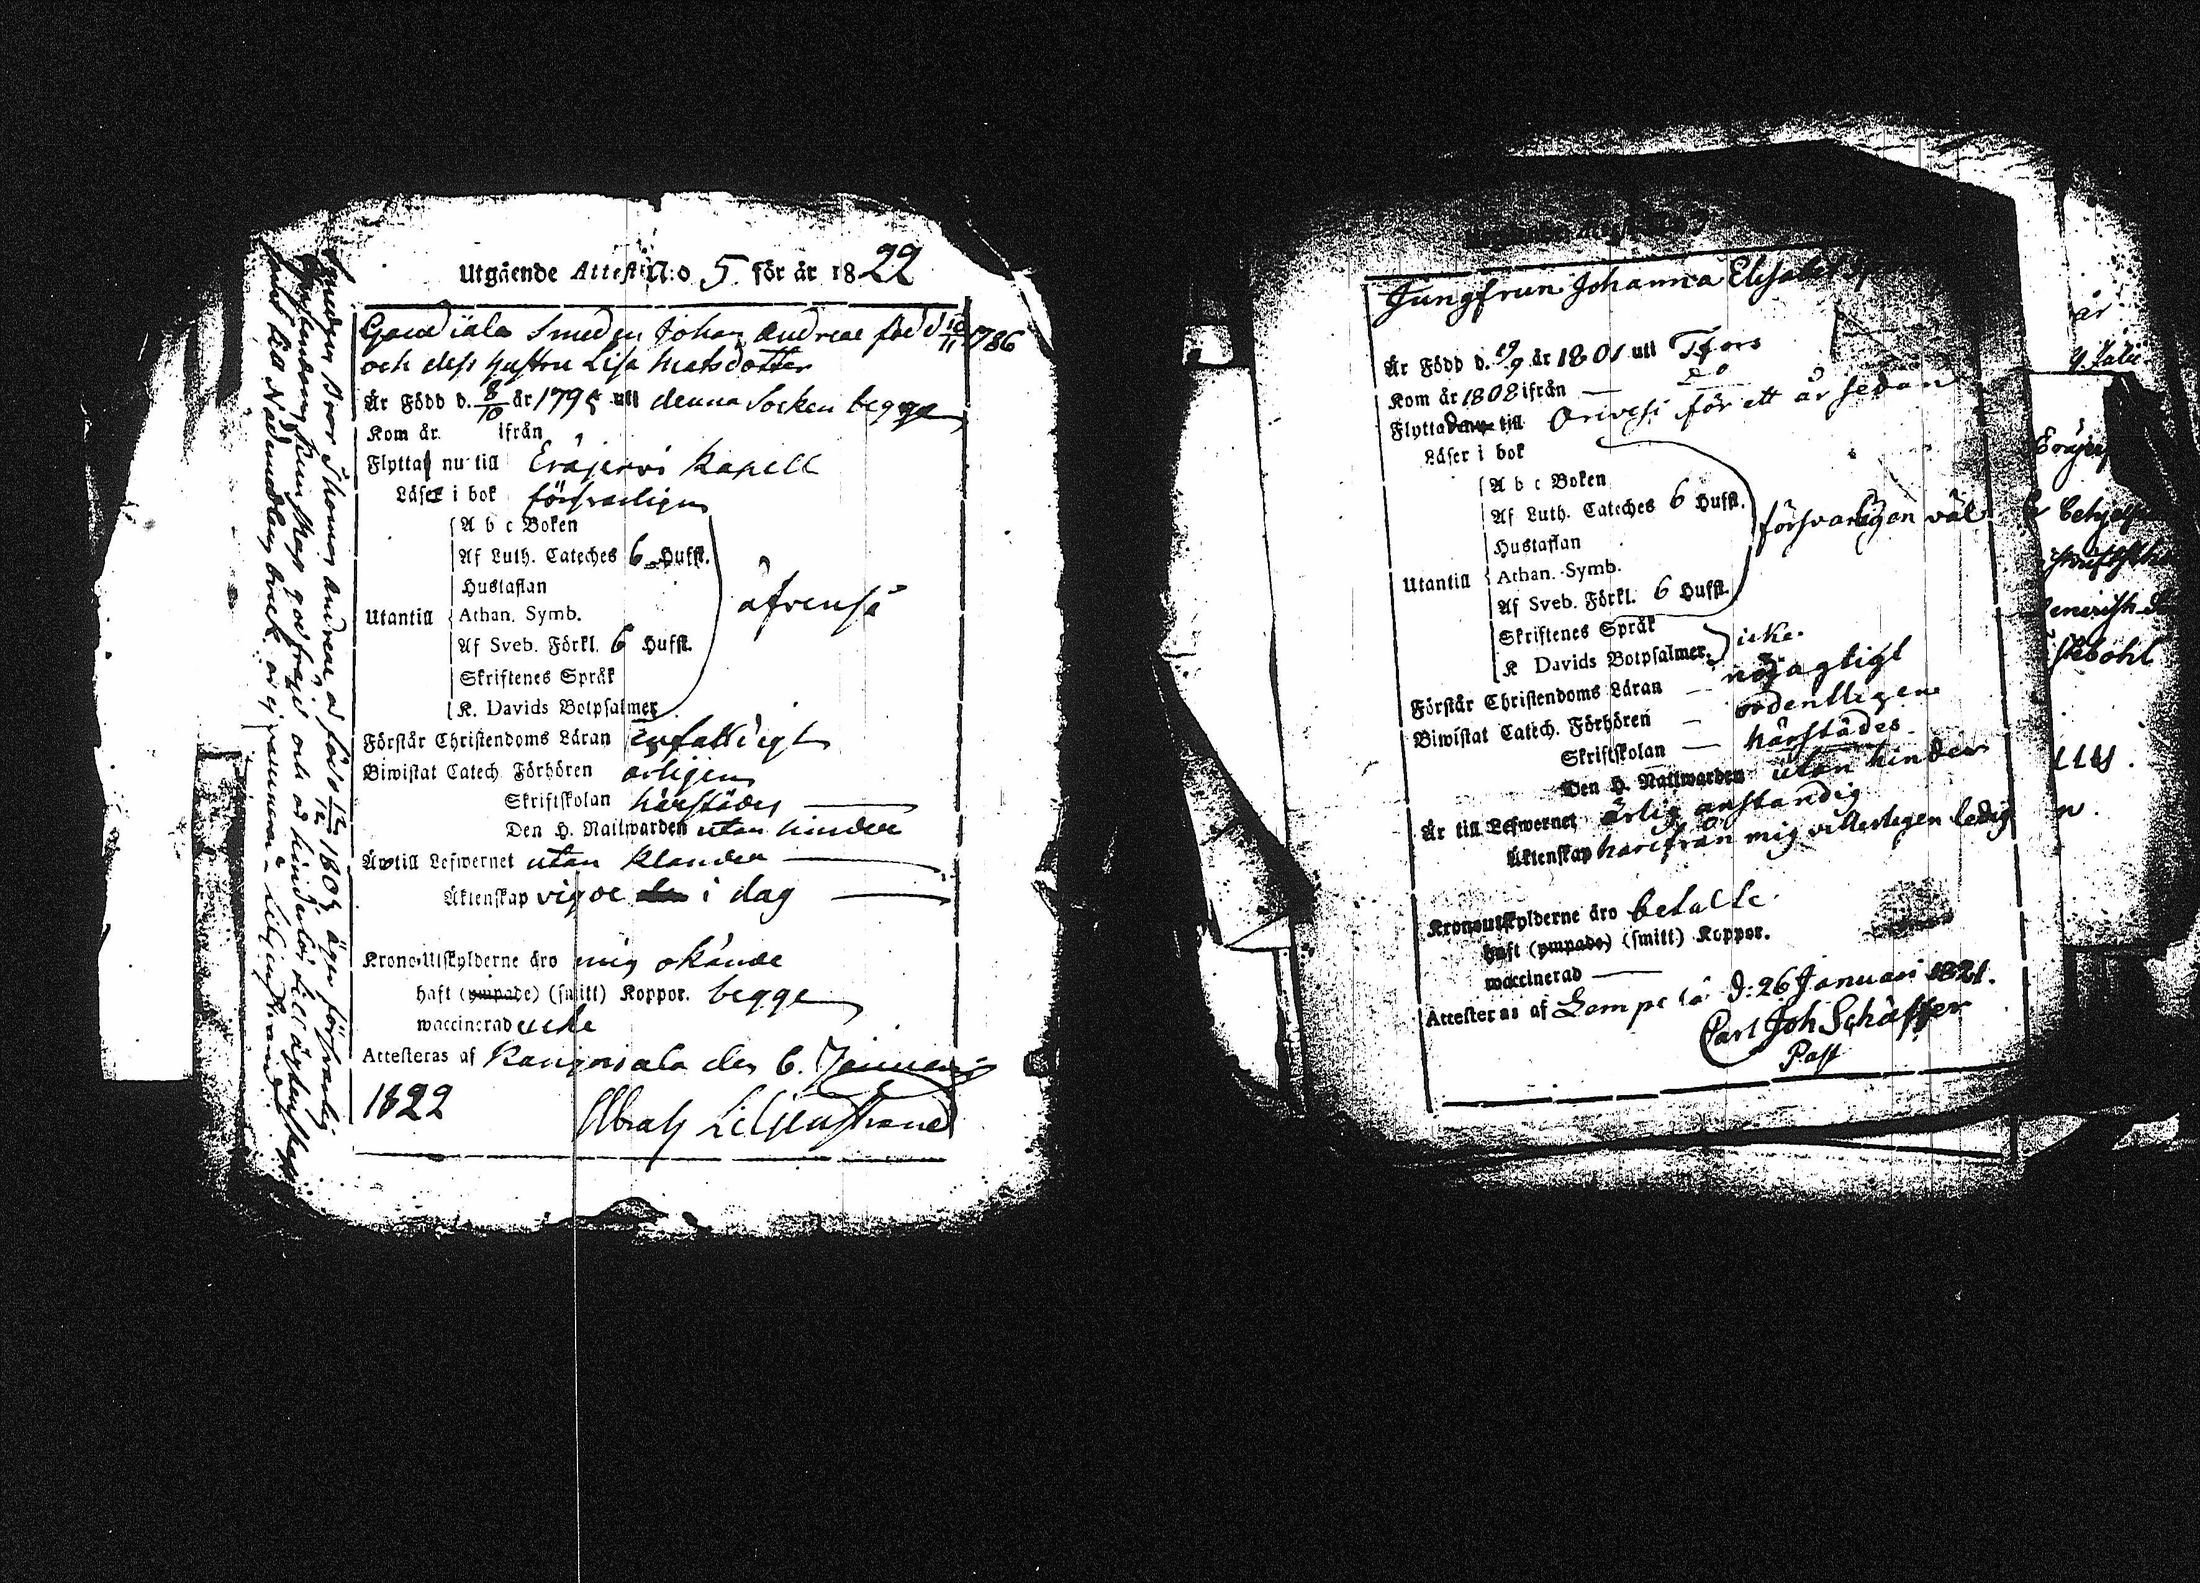 Utgående Attest N:o 5. för år 1822
Smeden Johan Andreae född 10/11 1786
och dess hustru Lisa Matsdotter
Är Född d. 8/10 år 1795 uti denna Socken begge
Kom år ifrån
Flytta nu till Eräjervi Kapell
Läser i bok försvarligen
A b c Boken
Af Luth. Cateches 6 Hufst.
Hustaflan
Utantill Athan. Symb.
Af Sveb. Förkl. 6 Hufst.
Skriftenes Språk
K. Davids Botpsalmer
åfvenså
Förstår Christendoms Läran enfaldigt
Biwistat Catech. Förhören årligen
Skriftskolan härstädes
Den H. Nattwarden utan hinder
Äro till Lefwernet utan klander
Äktenskap vigde i dag
Krono-Utskylderne äro mig okände
haft (ympade) (smitt) Koppor. begge
waccinerad icke
Attesteras af Kangasala den 6. Januarii
1822
Abrah Liljenstrand
Smeden Thomas Andreae född 1805 äger försvarlig
Christendoms kunskap, god frägd och är hinderlös till ägtenskap
samt till Nådemedlens bruk
Jungfrun Johanna
Är Född d. 19/9 år 1801 uti Tfors
Kom år 1808 ifrån Do
Flyttade till Orivesi för ett år sedan
Läser i bok
A b c Boken
Af Luth. Cateches 6 Hufst.
Hustaflan
Utantill Athan. Symb.
Af Sveb. Förkl. 6 Hufst.
försvarligen väl
Skriftenes Språk
K Davids Botpsalmer. icke.
Förstår Christendoms Läran nöjagtigt
Biwistat Catech. Förhören ordentligen
Skriftskolan härstädes
Den H. Nattwarden utan hinder
Är till Lefwernet ärlig anständig
Äktenskap härifrån mig vetterligen ledig
Kronoutskylderne äro betalte
haft (ympade) (smitt) Koppor.
waccinerad
Attesteras af Lempelä d: 26 Januari 1821.
Carl Joh Schäffer
Past
år